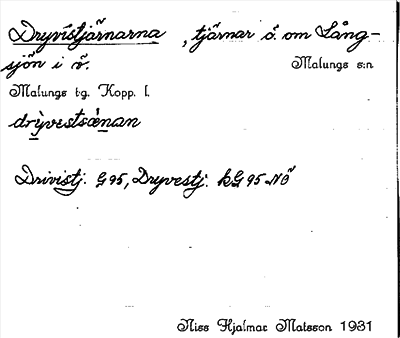 Dryvistjärnarna, tjärnar ö. om Lång-
sjön i v. Malungs s:n
Malungs tg. Kopp. l.
drỳvestsæ̀nan
Drivistj. G95, Dryvestj. kG95 NÖ
Niss Hjalmar Matsson 1931